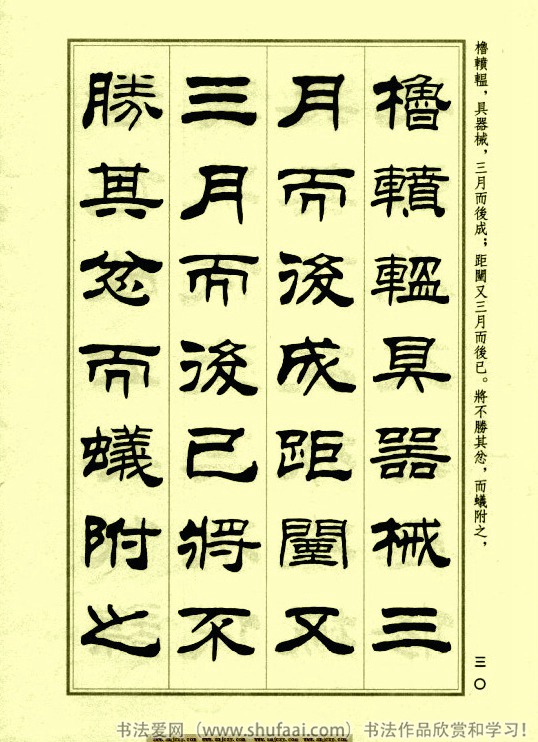 櫓轒轀，具器械，三月而後成；距闉又三月而後已。將不勝其忿，而蟻附之，
櫓轒轀具器械三
月而後成距闉又
三月而後已將不
勝其忿而蟻附之
三〇
书法爱网（www.shufaai.com）书法作品欣赏和学习!